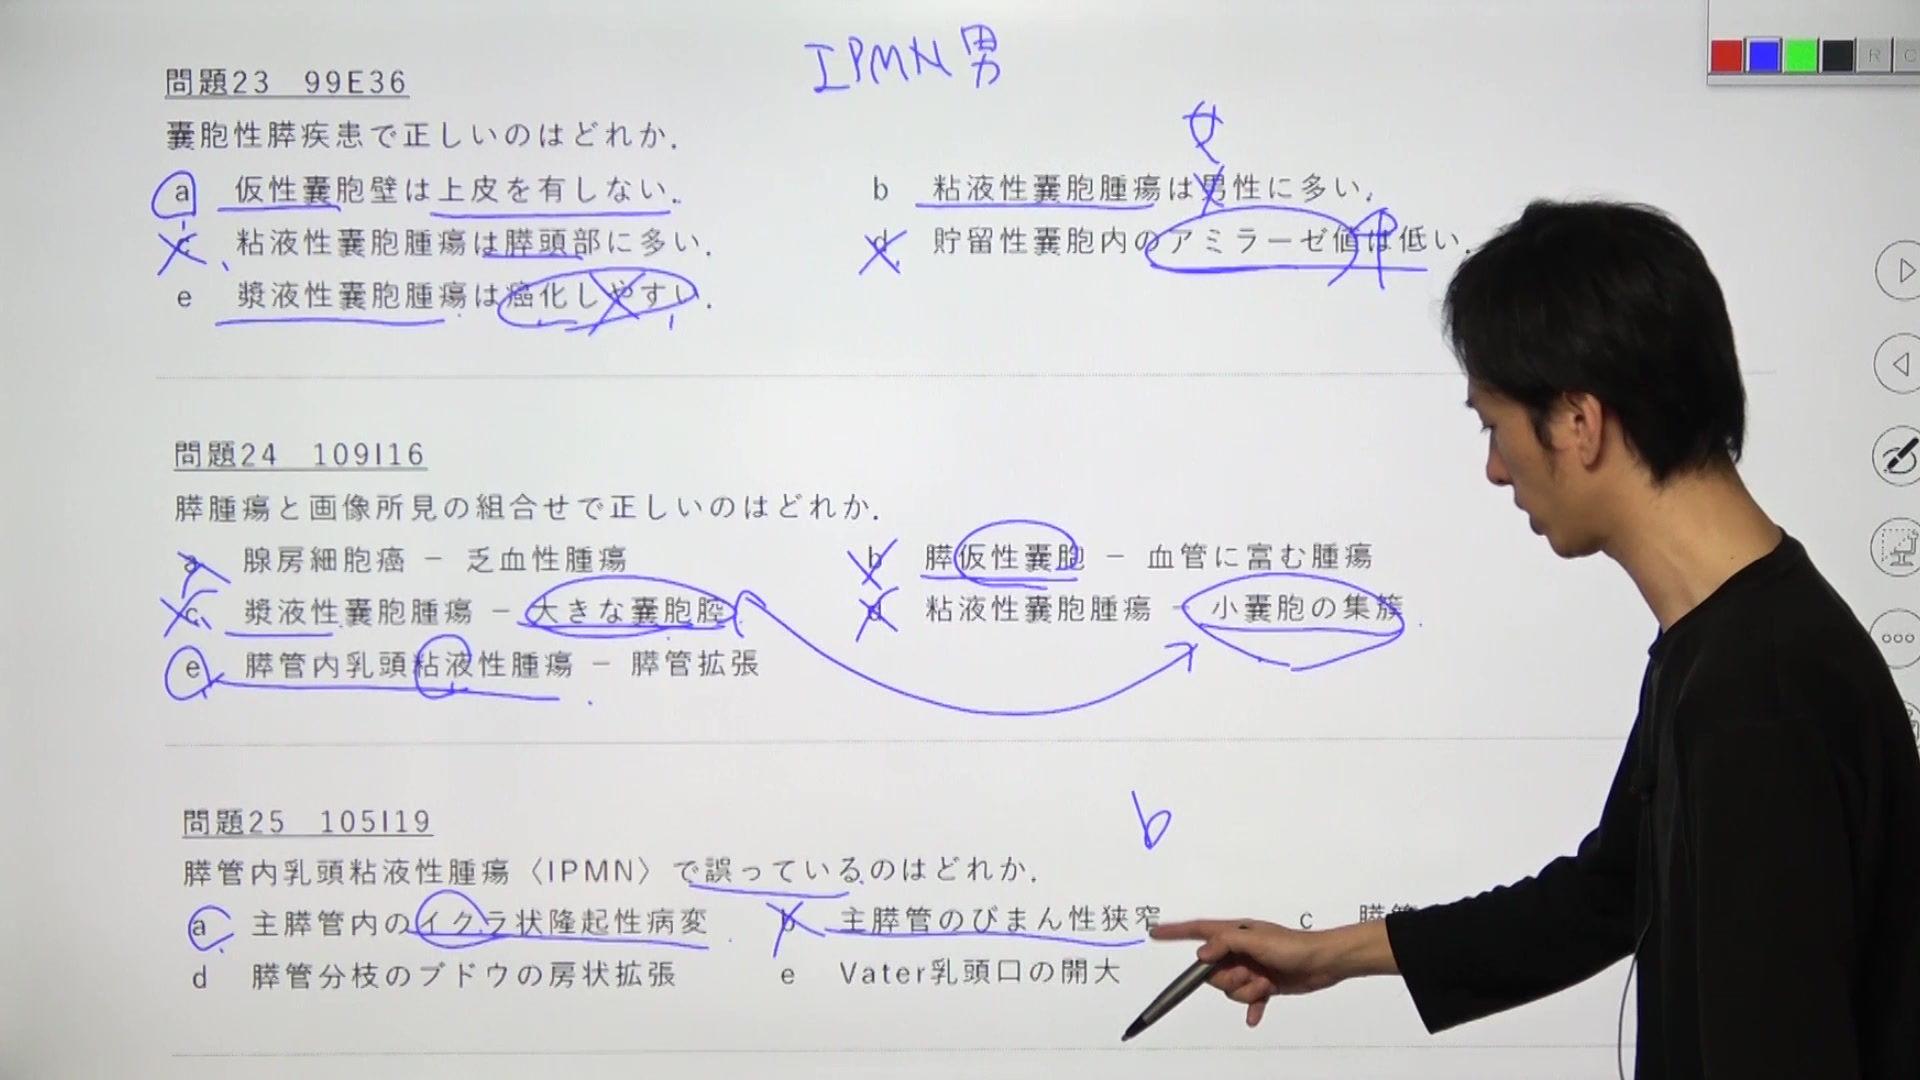 IPMN 男
問題23　99E36
嚢胞性膵疾患で正しいのはどれか.
女
a　仮性嚢胞壁は上皮を有しない.　b　粘液性嚢胞腫瘍は男性に多い.
c　粘液性嚢胞腫瘍は膵頭部に多い.　d　貯留性嚢胞内のアミラーゼ値は低い.
e　漿液性嚢胞腫瘍は癌化しやすい.
問題24　109I16
膵腫瘍と画像所見の組合せで正しいのはどれか.
a　腺房細胞癌 － 乏血性腫瘍　b　膵仮性嚢胞 － 血管に富む腫瘍
c　漿液性嚢胞腫瘍 － 大きな嚢胞腔　d　粘液性嚢胞腫瘍 － 小嚢胞の集簇
e　膵管内乳頭粘液性腫瘍 － 膵管拡張
b
問題25　105I19
膵管内乳頭粘液性腫瘍〈IPMN〉で誤っているのはどれか.
a　主膵管内のイクラ状隆起性病変　b　主膵管のびまん性狭窄　c　膵管
d　膵管分枝のブドウの房状拡張　e　Vater乳頭口の開大
R C